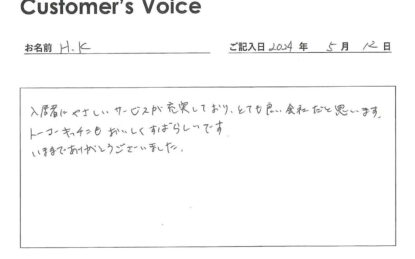 Customer's Voice
お名前 H.K ご記入日 2024 年 5 月 12 日
入居者にやさしいサービスが充実しており、とても良い会社だと思います。
トーコーキッチンもおいしくすばらしいです。
いままでありがとうございました。